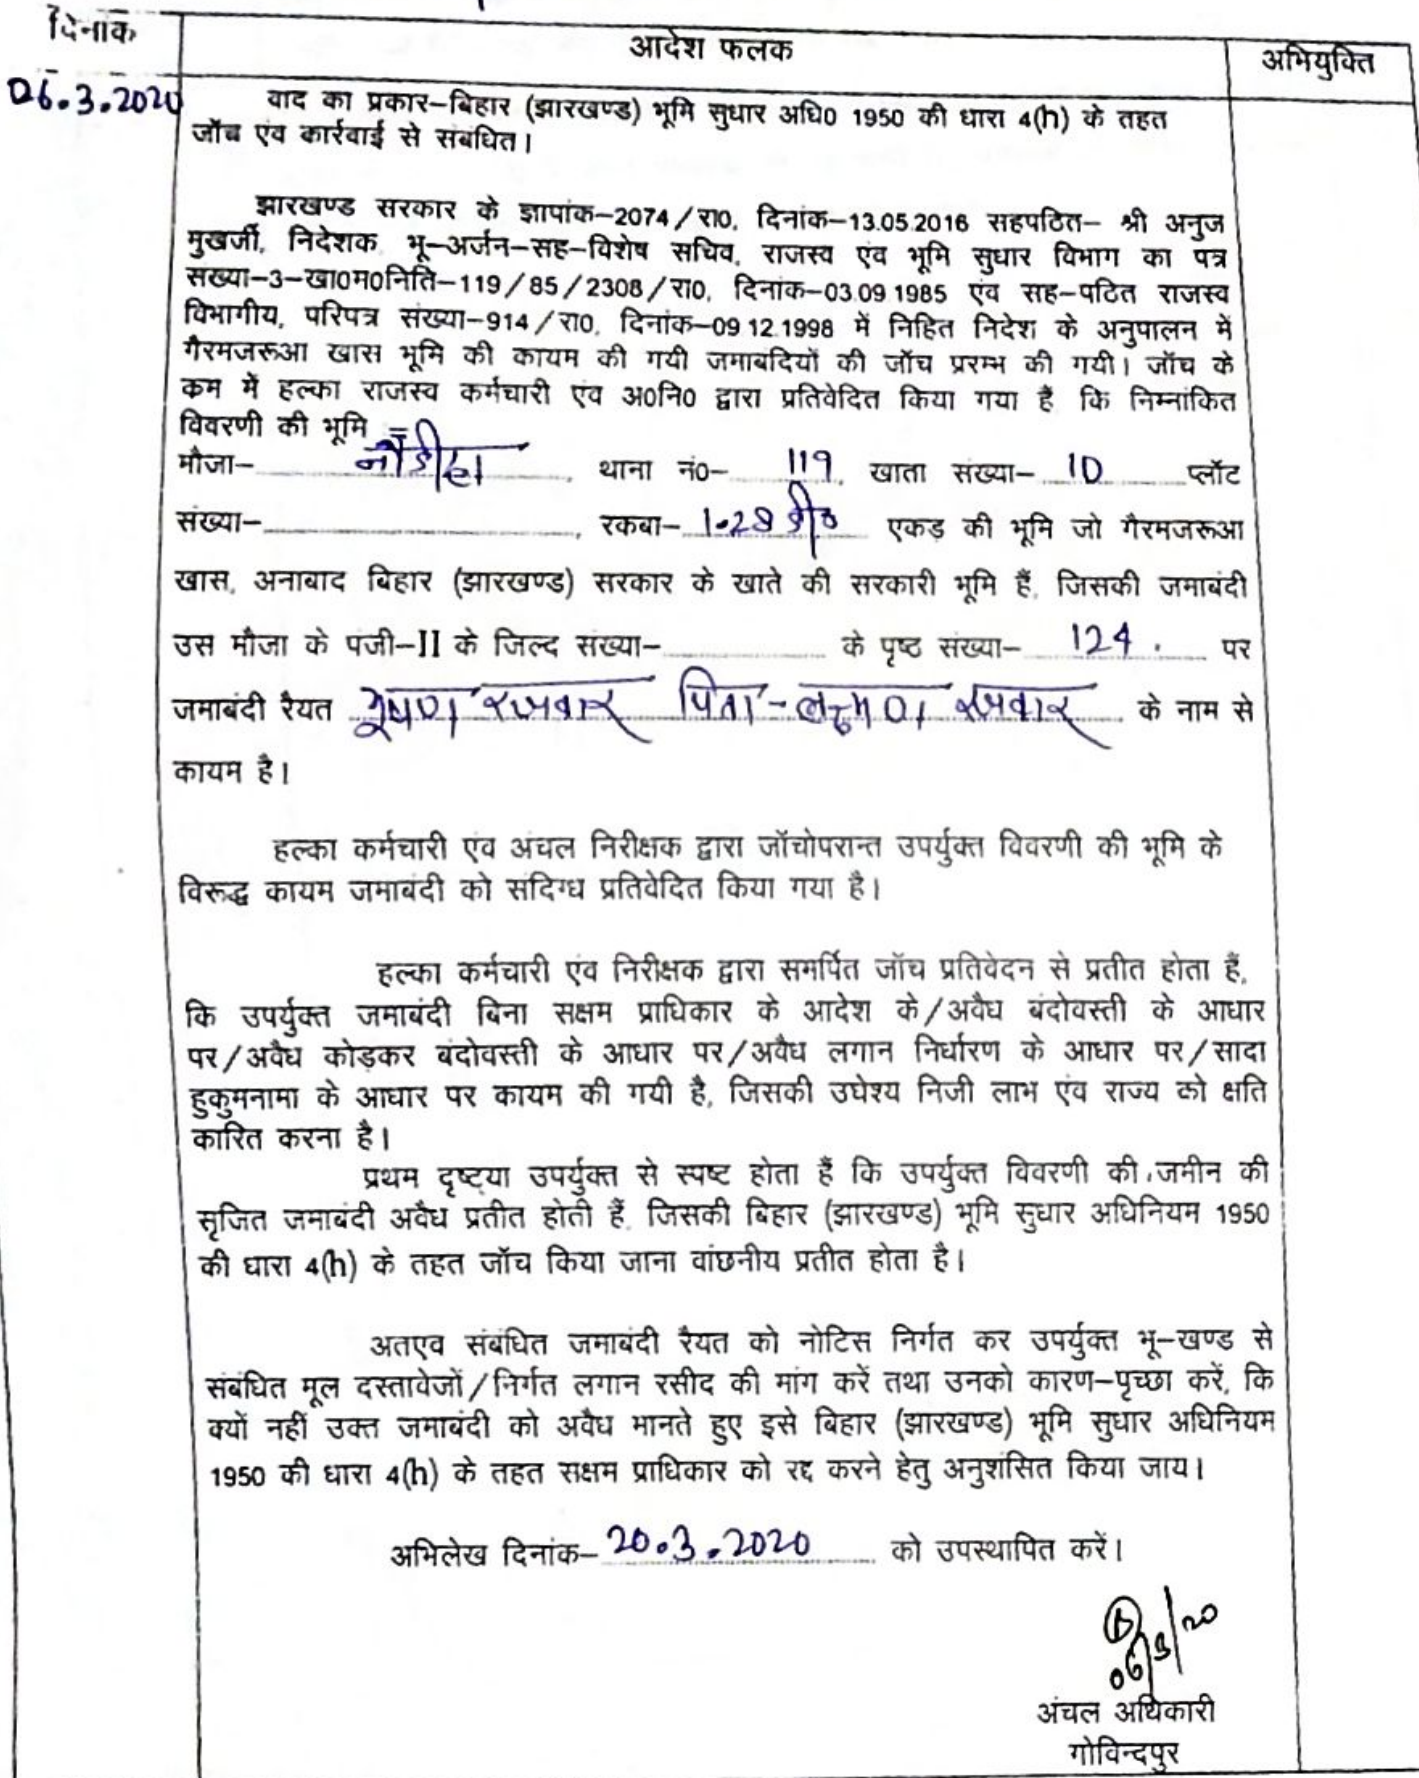 दिनांक
आदेश फलक
अभियुक्ति
06.3.2020
वाद का प्रकार–बिहार (झारखण्ड) भूमि सुधार अधि0 1950 की धारा 4(h) के तहत
जॉच एंव कार्रवाई से संबंधित।
झारखण्ड सरकार के ज्ञापांक–2074/रा0, दिनांक–13.05.2016 सहपठित– श्री अनुज
मुखर्जी, निदेशक, भू–अर्जन–सह–विशेष सचिव, राजस्व एंव भूमि सुधार विभाग का पत्र
संख्या–3–खा0म0निति–119/85/2308/रा0, दिनांक–03.09.1985 एंव सह–पठित राजस्व
विभागीय, परिपत्र संख्या–914/रा0, दिनांक–09.12.1998 में निहित निदेश के अनुपालन में
गैरमजरूआ खास भूमि की कायम की गयी जमाबंदियों की जॉच प्ररम्भ की गयी। जॉच के
कम में हल्का राजस्व कर्मचारी एंव अ0नि0 द्वारा प्रतिवेदित किया गया हैं, कि निम्नांकित
विवरणी की भूमि –
मौजा– नौडीहा, थाना नं0– 119, खाता संख्या– 10 प्लॉट
संख्या–, रकबा– 1.28 डी0 एकड़ की भूमि जो गैरमजरूआ
खास, अनाबाद बिहार (झारखण्ड) सरकार के खाते की सरकारी भूमि हैं, जिसकी जमाबंदी
उस मौजा के पंजी–II के जिल्द संख्या– के पृष्ठ संख्या– 124. पर
जमाबंदी रैयत भूषण रजवार पिता–लक्ष्मण रजवार के नाम से
कायम है।
हल्का कर्मचारी एंव अंचल निरीक्षक द्वारा जॉचोपरान्त उपर्युक्त विवरणी की भूमि के
विरूद्ध कायम जमाबंदी को संदिग्ध प्रतिवेदित किया गया है।
हल्का कर्मचारी एंव निरीक्षक द्वारा समर्पित जॉच प्रतिवेदन से प्रतीत होता हैं,
कि उपर्युक्त जमाबंदी बिना सक्षम प्राधिकार के आदेश के/अवैध बंदोवस्ती के आधार
पर/अवैध कोड़कर बंदोवस्ती के आधार पर/अवैध लगान निर्धारण के आधार पर/सादा
हुकुमनामा के आधार पर कायम की गयी है, जिसकी उघेश्य निजी लाभ एंव राज्य को क्षति
कारित करना है।
प्रथम दृष्ट्या उपर्युक्त से स्पष्ट होता हैं कि उपर्युक्त विवरणी की जमीन की
सृजित जमाबंदी अवैध प्रतीत होती हैं, जिसकी बिहार (झारखण्ड) भूमि सुधार अधिनियम 1950
की धारा 4(h) के तहत जॉच किया जाना वांछनीय प्रतीत होता है।
अतएव संबंधित जमाबंदी रैयत को नोटिस निर्गत कर उपर्युक्त भू–खण्ड से
संबंधित मूल दस्तावेजों/निर्गत लगान रसीद की मांग करें तथा उनको कारण–पृच्छा करें, कि
क्यों नहीं उक्त जमाबंदी को अवैध मानते हुए इसे बिहार (झारखण्ड) भूमि सुधार अधिनियम
1950 की धारा 4(h) के तहत सक्षम प्राधिकार को रद्द करने हेतु अनुशंसित किया जाय।
अभिलेख दिनांक– 20.3.2020 को उपस्थापित करें।
06/3/20
अंचल अधिकारी
गोविन्दपुर